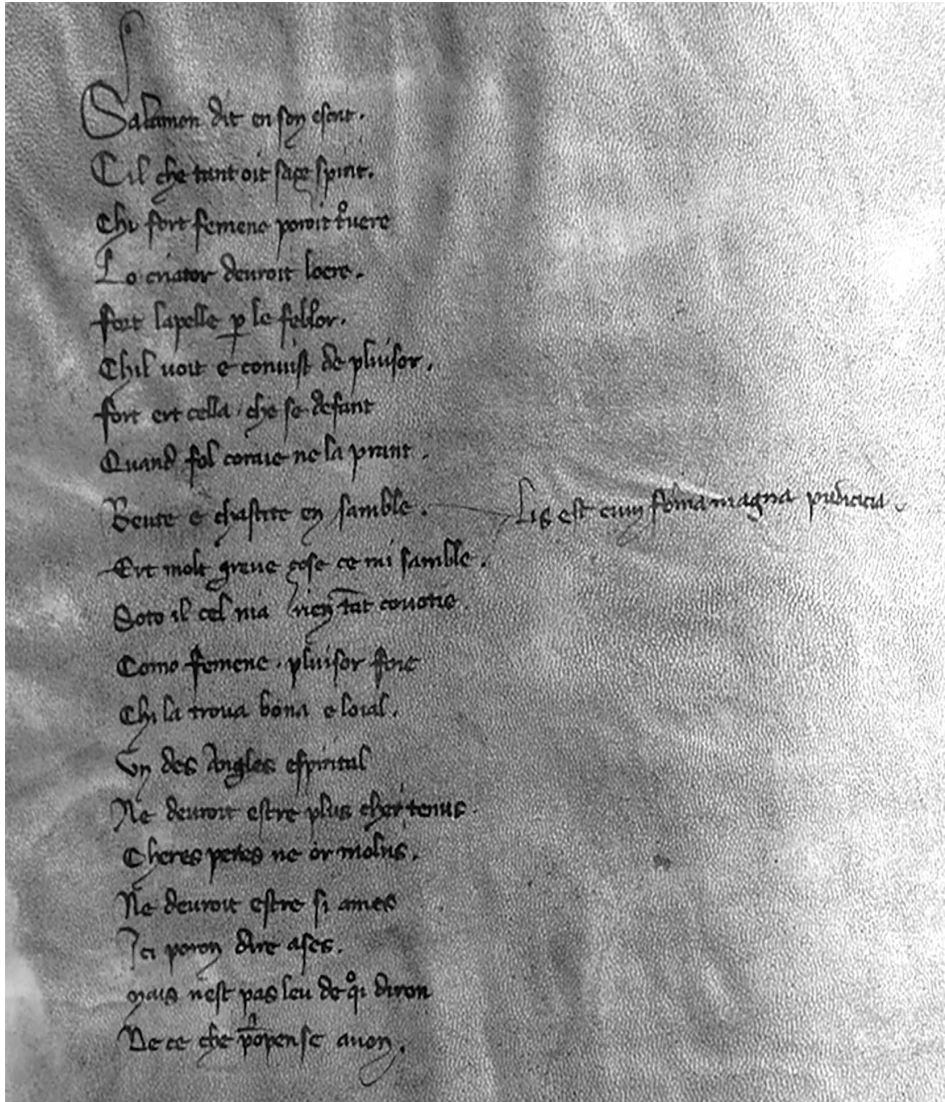 Salamon dit en son escrit.
Cil che tant oit sage spirit.
Chi fort femene poroit t͛uere
Lo criator deuroit loere.
fort lapelle ꝑ le feblor.
Chil uoit e conuist de pluisor.
fort ert cella / che se defant
Quand fol coraie ne la prant.
Beute e chastite en samble. Lis est cum foma magna pudicicia.
Ert molt greue çose ce mi samble.
Soto il cel nia rien tāt couotie.
Como femene. pluisor foie
Chi la troua bona e loial.
Vn des Angles espirital
Ne deuroit estre plus cher tenus.
Cheres peres ne or molus.
Ne deuroit estre si ames
Ici poron dire ases.
mais nest pas leu de qͦi diron
De ce che ꝓpense auon.